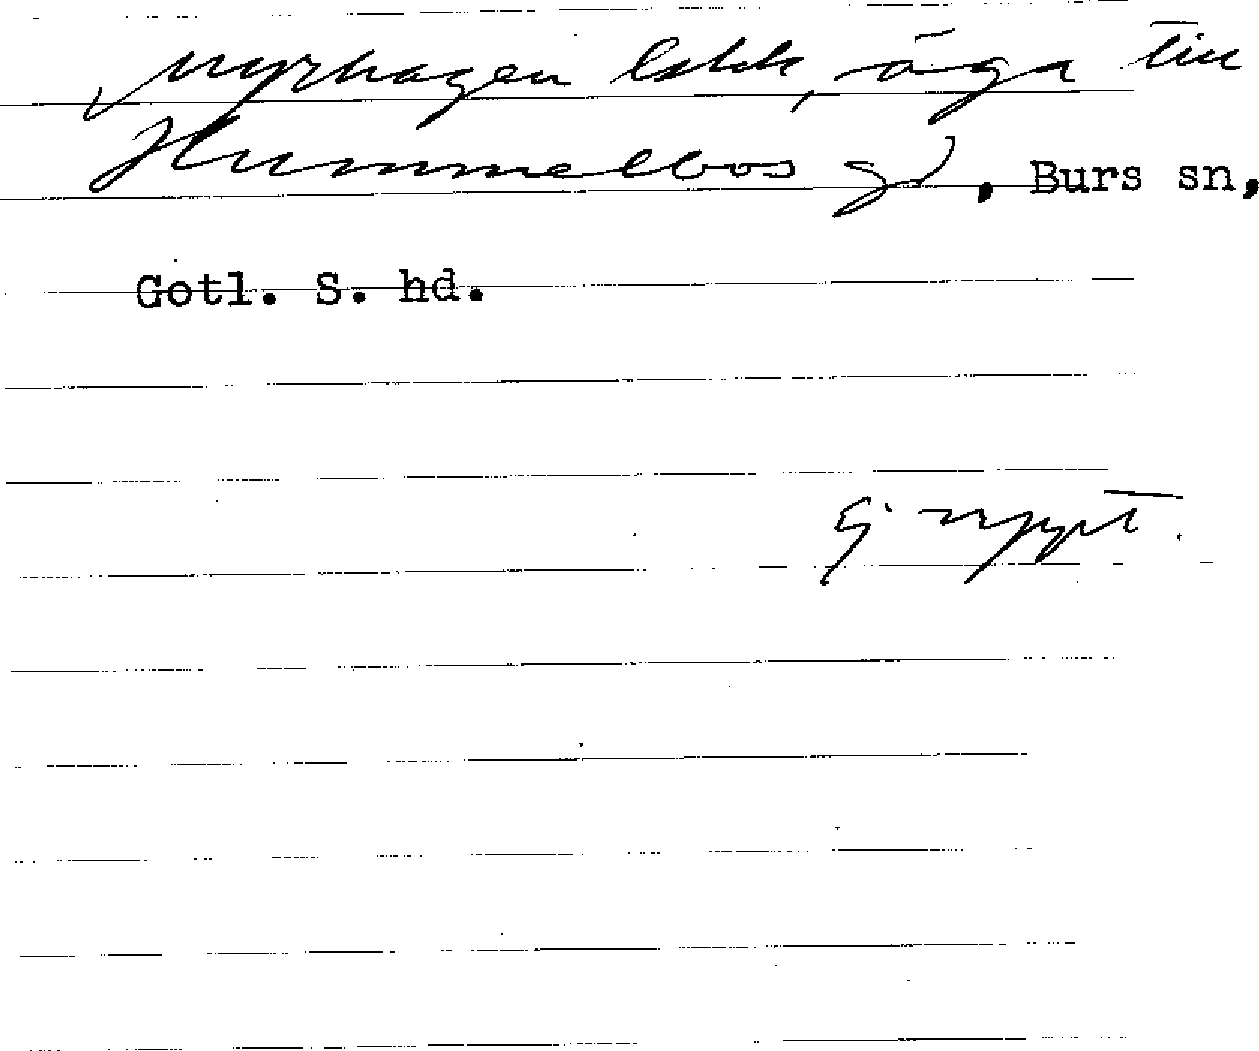 Myrhagen äga till
Hummelbos gd, Burs sn,
Gotl. S. hd.
Ej uppt.